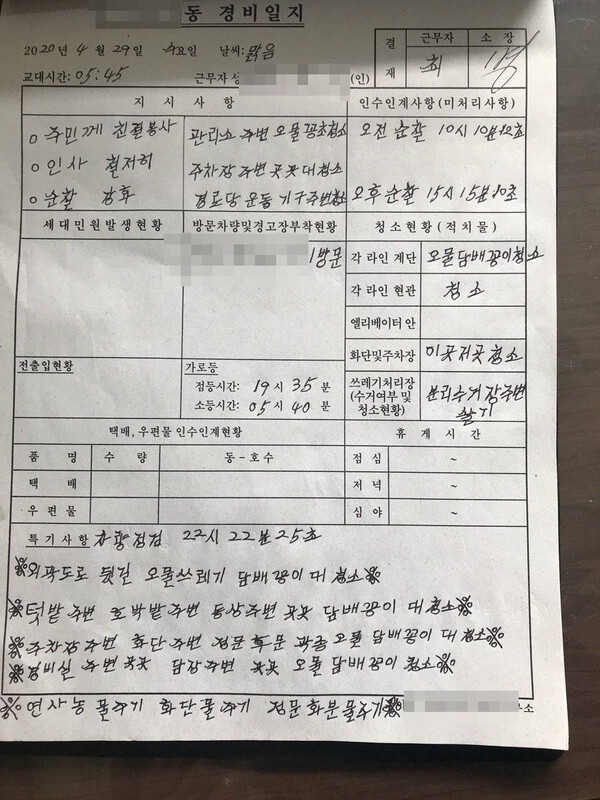 동 경비일지
2020년 4월 29일 수요일 날씨: 맑음
결재 근무자 소장
교대시간: 05:45 근무자 성 (인) 희
지시사항 인수인계사항(미처리사항)
○ 주민께 친절봉사 관리소 주변 오물꽁초청소 오전 순찰 10시 10분 12초
○ 인사 철저히 주차장 주변 곳곳 대청소
○ 순찰 강화 경로당 운동기구주변청소 오후순찰 15시 15분 10초
세대민원발생현황 방문차량및경고장부착현황 청소현황(적치물)
1방문 각 라인 계단 오물담배꽁이청소
각 라인 현관 청소
엘리베이터 안
전출입현황 가로등 화단및주차장 이곳저곳 청소
점등시간: 19시 35분
소등시간: 05시 40분
쓰레기처리장 (수거여부 및 청소현황) 분리수거장주변 쓸기
택배, 우편물 인수인계현황 휴게시간
품명 수량 동-호수 점심 ~
택배 저녁 ~
우편물 심야 ~
특기사항 22시 22분 25초
※외곽도로 뒷길 오물쓰레기 담배꽁이 대청소※
※텃밭 주변 호박밭주변 동상주변 곳곳 담배꽁이 대청소※
※주차장주변 화단주변 정문 후문 오물 담배꽁이 대청소※
※경비실 주변 곳곳 담장주변 곳곳 오물 담배꽁이 청소※
※연사농 물주기 화단물주기 정문화분물주기※